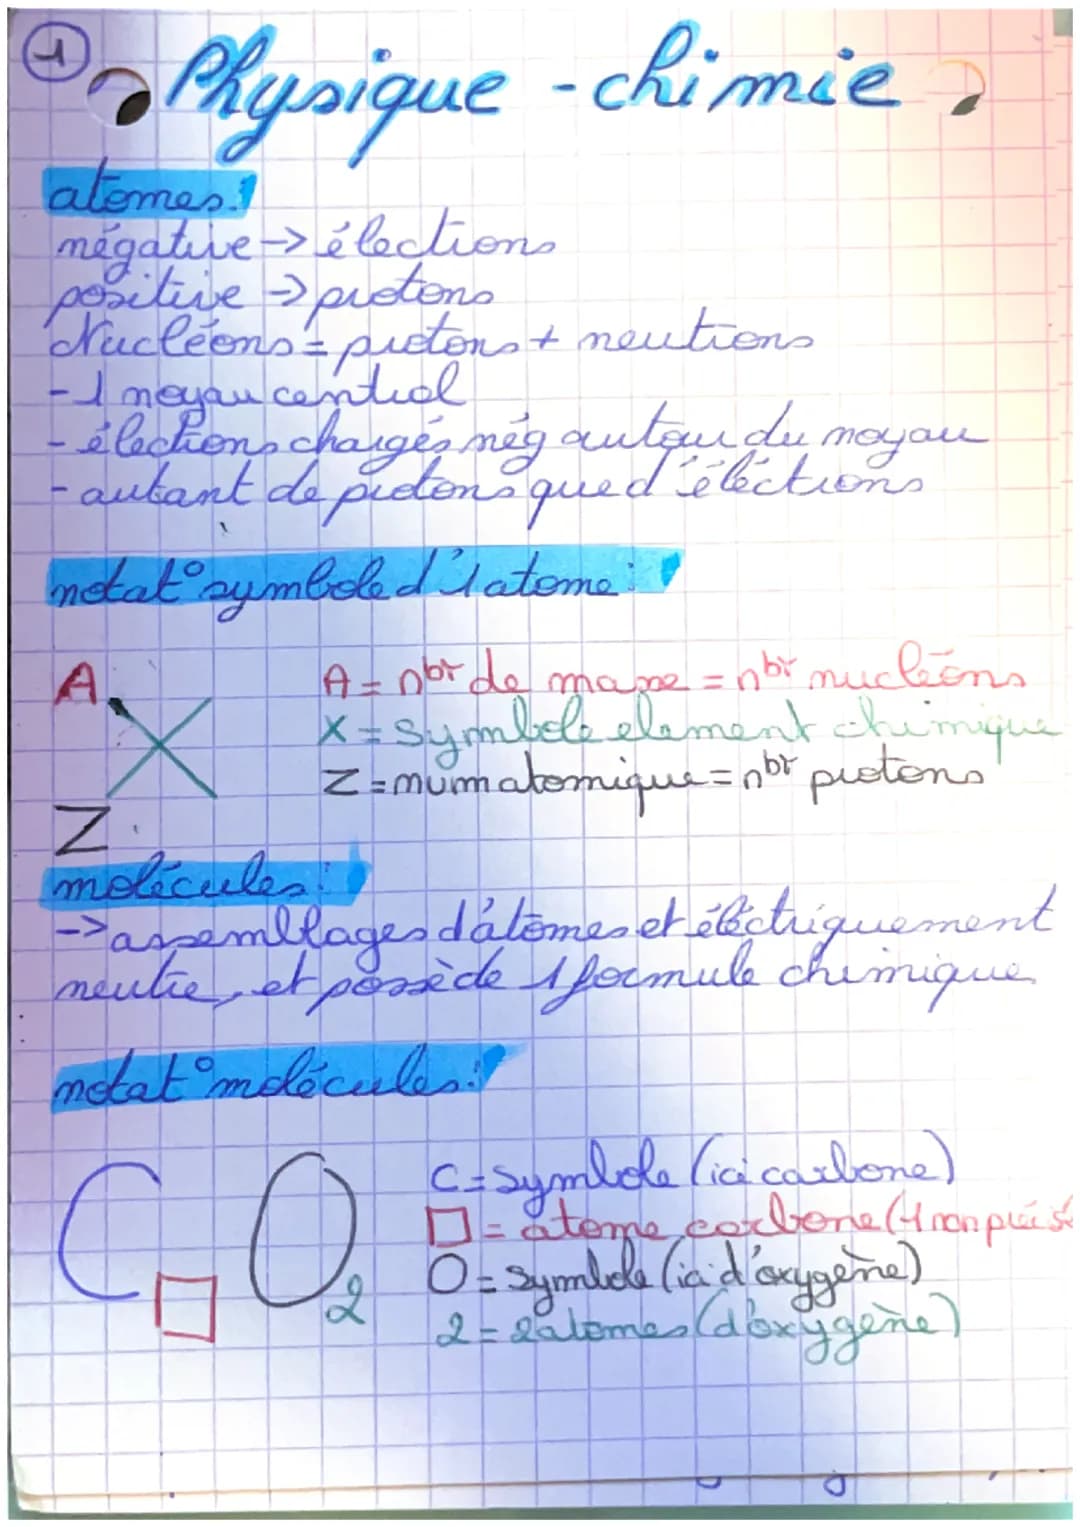 1
Physique-chimie
atomes:
négative -> élections
positive -> protons
Nucléons = protons + neutrons
- 1 noyau central
- élections chargés nég autour du noyau
- autant de protons que d'éléctrons
notat° symbole d'1 atome:
A
X
Z
A = nbr de masse = nbr nucléons
X = symbole element chimique
Z = num atomique = nbr protons
molécules:
-> assemblages d'atomes et éléctriquement
neutre, et possède 1 formule chimique
notat° molécules:
C□O2
C = symbole (ici carbone)
□ = atome carbone (1 non précisé
O = symbole (ici d'oxygène)
2 = 2 atomes (d'oxygène)